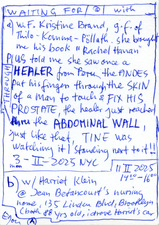 WAITING FOR ① with
a) W.F. Kristine Brand, g.f. of
Thilo-Kenne-Passath she brought
me his book "Rachel Hanan"
PLUS told me she saw once a
HEALER from Peru, the ANDES
put his finger through the SKIN
of a man to touch & FIX HIS
PROSTATE the healer just reached
thru the ABDOMINAL WALL,
just like that, TINE was
watching it standing next to it!!
3-II-2025 NYC
11 II 2025
14ºº-16ºº
b) w/ Harriet Klein
@ Jean Betancourt's nursing
home, 135 Linden Blvd, Brooklyn
(Jean 88 yrs old, i drove Harriet's car
THROUGH